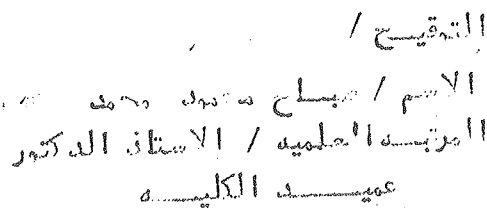 التوقيع /
الاسم / صباح محمود محمد
المرتبه العلميه / الاستاذ الدكتور
عميد الكليه